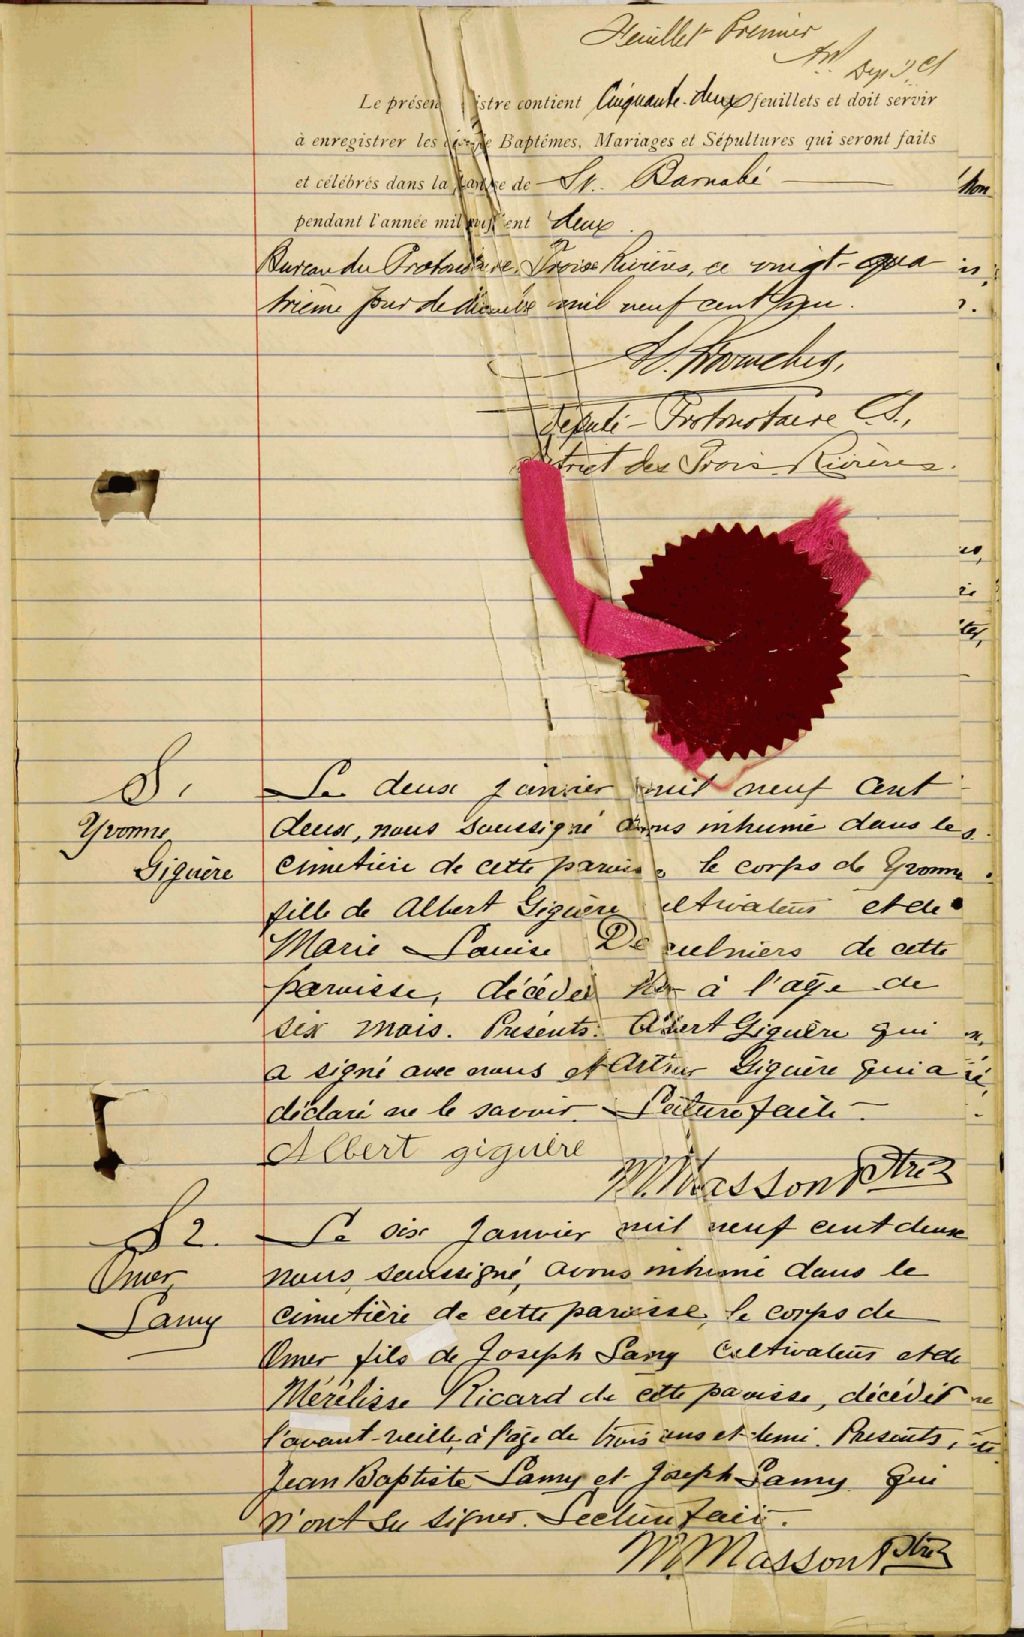 Feuillet Premier
Dep P CS
Le présent registre contient Cinquante-deux feuillets et doit servir
à enregistrer les de Baptêmes, Mariages et Sépultures qui seront faits
et célébrés dans la paroisse de St. Barnabé
pendant l'année mil neuf cent deux.
Bureau du Protonotaire, Trois Rivières, ce vingt-qua
trième jour de décembre mil neuf cent un.
Député-Protonotaire C.S.,
District des Trois-Rivières.
S. 1
Yvonne
Giguère
Le deux janvier mil neuf cent
deux, nous soussigné avons inhumé dans le
cimetière de cette paroisse le corps de Yvonne
fille de Albert Giguère cultivateur et de
Marie Louise De ulniers de cette
paroisse, décédée hier à l'age de
six mois. Présents: Albert Giguère qui
a signé avec nous et Arthur Giguère qui a
déclaré ne le savoir. Lecture faite.
Albert giguère
M. Masson Ptre
S 2.
Omer
Lamy
Le six Janvier mil neuf cent deux
nous, soussigné, avons inhumé dans le
cimetière de cette paroisse, le corps de
Omer fils de Joseph Lamy Cultivateur et de
Mérélisse Ricard de cette paroisse, décédé
l'avant-veille, à l'age de trois ans et demi. Présents,
Jean Baptiste Lamy et Joseph Lamy qui
n'ont su signer. Lecture faite.
M. Masson Ptre